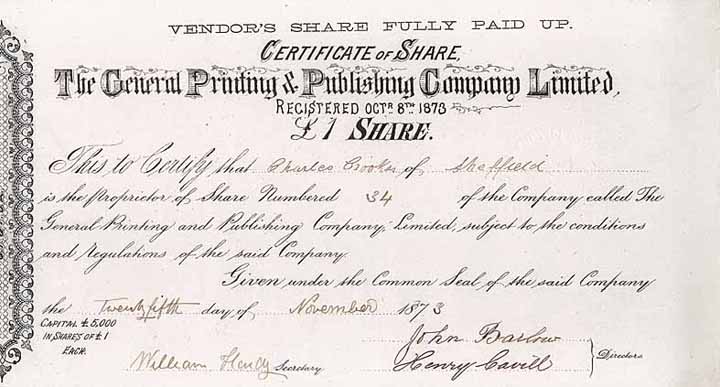 VENDOR'S SHARE FULLY PAID UP.
CERTIFICATE OF SHARE,
The General Printing & Publishing Company Limited,
REGISTERED OCTR 8TH 1873
£1 SHARE.
This is to Certify that Charles Crookes of Sheffield
is the Proprietor of Share Numbered 34 of the Company called The
General Printing and Publishing Company, Limited, subject to the conditions
and Regulations of the said Company.
Given under the Common Seal of the said Company
the Twentyfifth day of November 1873
CAPITAL £5,000
IN SHARES OF £1
EACH.
John Barlow
Henry Cavill
Directors
William Hendy Secretary